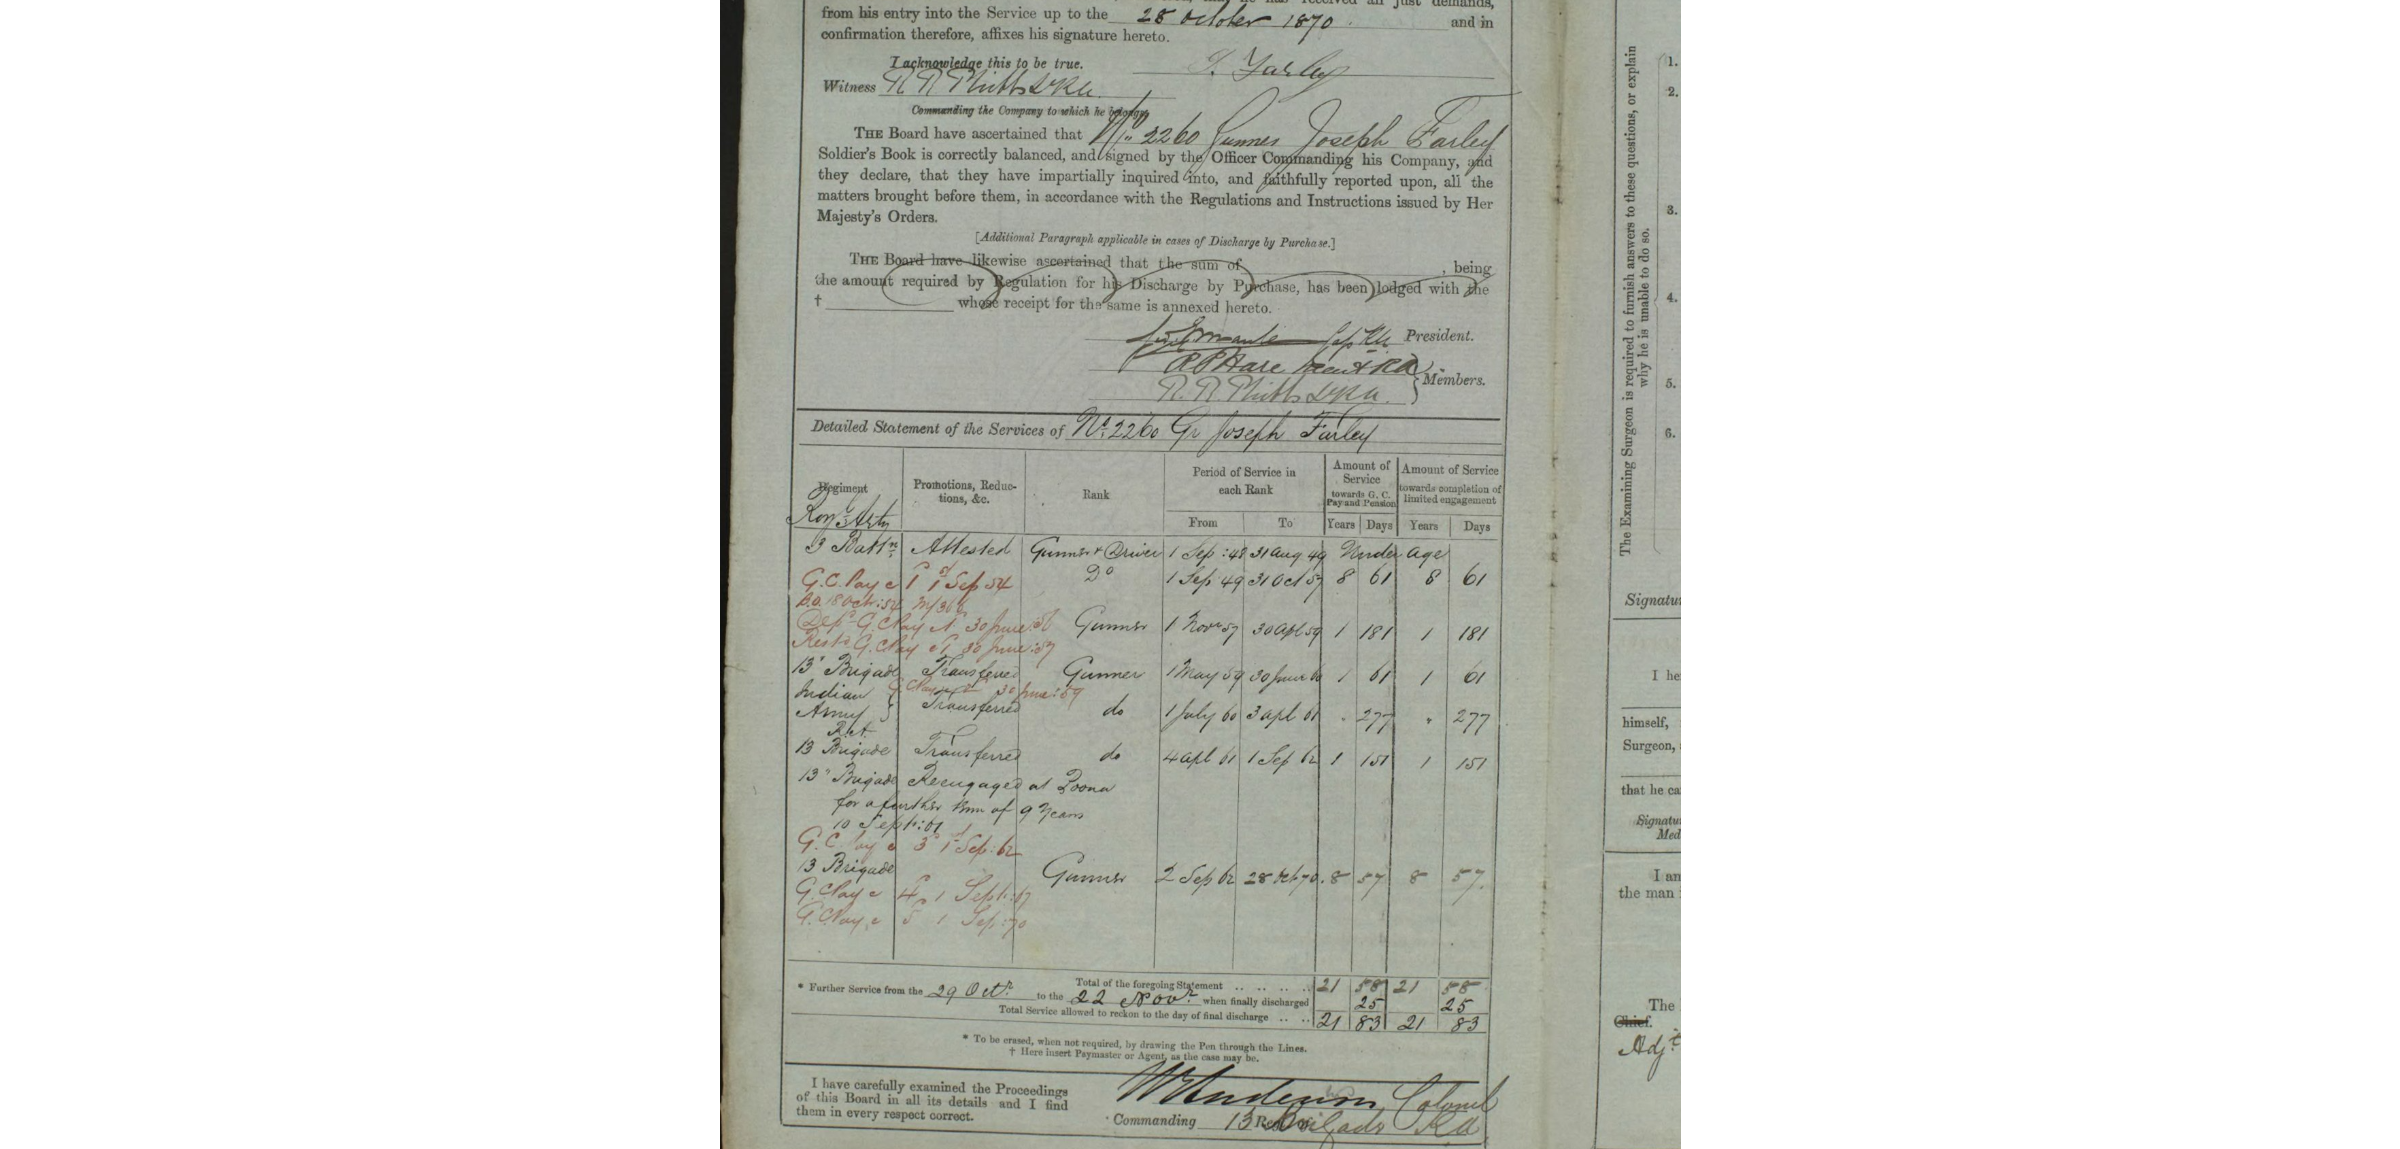 from his entry into the Service up to the 28 October 1870. and in
confirmation therefore, affixes his signature hereto.
I acknowledge this to be true. J. Farley
Witness
Commanding the Company to which he belongs
THE Board have ascertained that No. 2260 Gunner Joseph Farley
Soldier's Book is correctly balanced, and signed by the Officer Commanding his Company, and
they declare, that they have impartially inquired into, and faithfully reported upon, all the
matters brought before them, in accordance with the Regulations and Instructions issued by Her
Majesty's Orders.
[Additional Paragraph applicable in cases of Discharge by Purchase.]
THE Board have likewise ascertained that the sum of , being
the amount required by Regulation for his Discharge by Purchase, has been lodged with the
† whose receipt for the same is annexed hereto.
President.
Members.
Detailed Statement of the Services of No. 2260 Gr Joseph Farley
Regiment Promotions, Reductions, &c. Rank Period of Service in each Rank Amount of Service towards G. C. Pay and Pension Amount of Service towards completion of limited engagement
From To Years Days Years Days
Roy. Arty
3 Battn Attested Gunner & Driver 1 Sep: 48 31 Aug 49 Under age
G.C. Pay 1 1 Sep 54 Do 1 Sep 49 31 Oct 57 8 61 8 61
18 Octr: 54
G.C. Pay 30 June: 56 Gunner 1 Novr 57 30 Apl 59 1 181 1 181
G.C. Pay 30 June: 57
13" Brigade Transferred Gunner 1 May 59 30 June 60 1 61 1 61
G.C. Pay 2 30 June: 59
Indian Army Transferred do 1 July 60 3 Apl 61 " 277 " 277
R.A.
13 Brigade Transferred do 4 Apl 61 1 Sep 62 1 151 1 151
13" Brigade Reengaged at Poona
for a further term of 9 Years
10 Septr: 61
G.C. Pay 3 1 Sep: 62
13 Brigade Gunner 2 Sep 62 28 Oct 70 8 57 8 57
G.C. Pay 4 1 Sept: 67
G.C. Pay 5 1 Sep: 70
Total of the foregoing Statement .. .. .. .. 21 58 21 58
* Further Service from the 29 Octr. to the 22 Novr. when finally discharged 25 25
Total Service allowed to reckon to the day of final discharge .. .. 21 83 21 83
* To be erased, when not required, by drawing the Pen through the Lines.
† Here insert Paymaster or Agent, as the case may be.
I have carefully examined the Proceedings
of this Board in all its details and I find
them in every respect correct.
Colonel
Commanding 13 Brigade RA
The Examining Surgeon is required to furnish answers to these questions, or explain
why he is unable to do so.
1.
2.
3.
4.
5.
6.
Signatu
I he
himself,
Surgeon,
that he ca
Signatu
Med
I an
the man
The
Chief.
Adjt